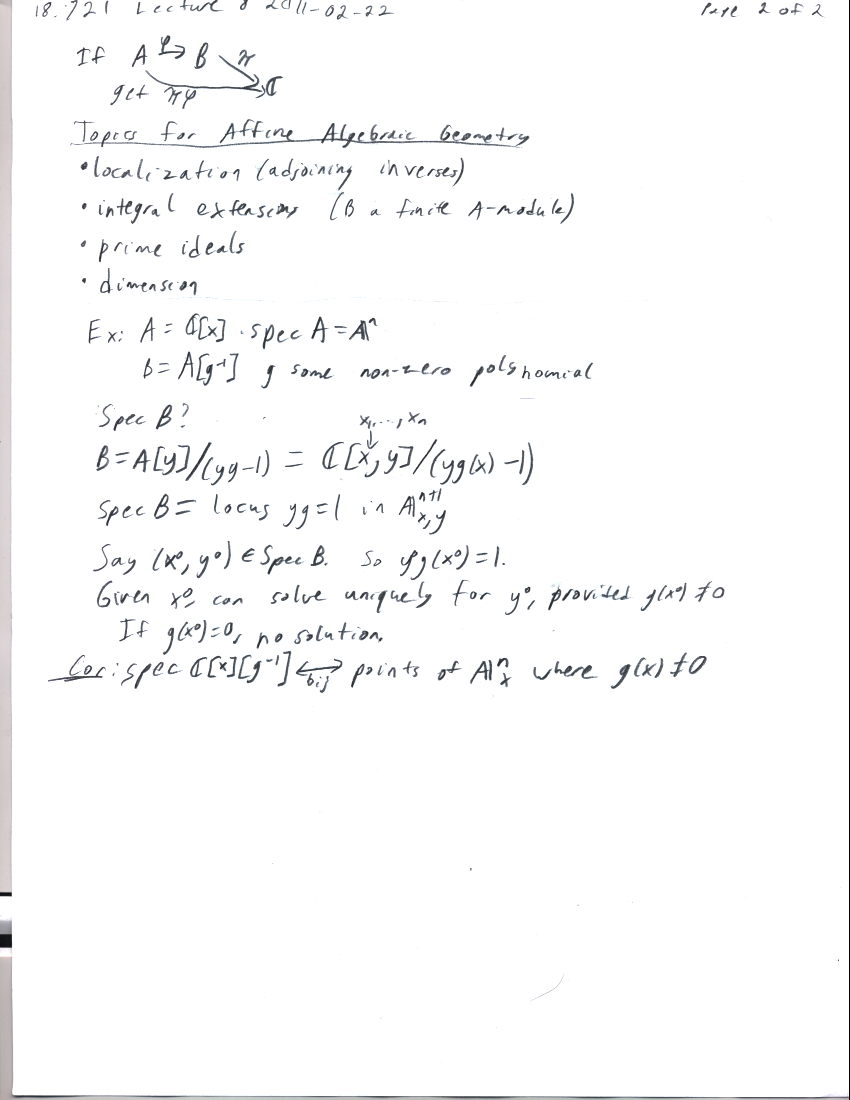 18.721 Lecture 8 2011-02-22 Page 2 of 2
If A φ→ B π
get πφ → ℂ
Topics for Affine Algebraic Geometry
• localization (adjoining inverses)
• integral extensions (B a finite A-module)
• prime ideals
• dimension
Ex: A = ℂ[x] . spec A = 𝔸ⁿ
B = A[g⁻¹] g some non-zero polynomial
Spec B?
x₁,..., xₙ
↓
B = A[y]/(yg-1) = ℂ[x, y]/(yg(x) -1)
Spec B = locus yg=1 in 𝔸ⁿ⁺¹ₓ,ᵧ
Say (x⁰, y⁰) ∈ Spec B. So yg(x⁰) = 1.
Given x⁰, can solve uniquely for y⁰, provided g(x⁰) ≠ 0
If g(x⁰)=0, no solution.
Cor: spec ℂ[x][g⁻¹] ⟷ bij points of 𝔸ⁿₓ where g(x) ≠ 0